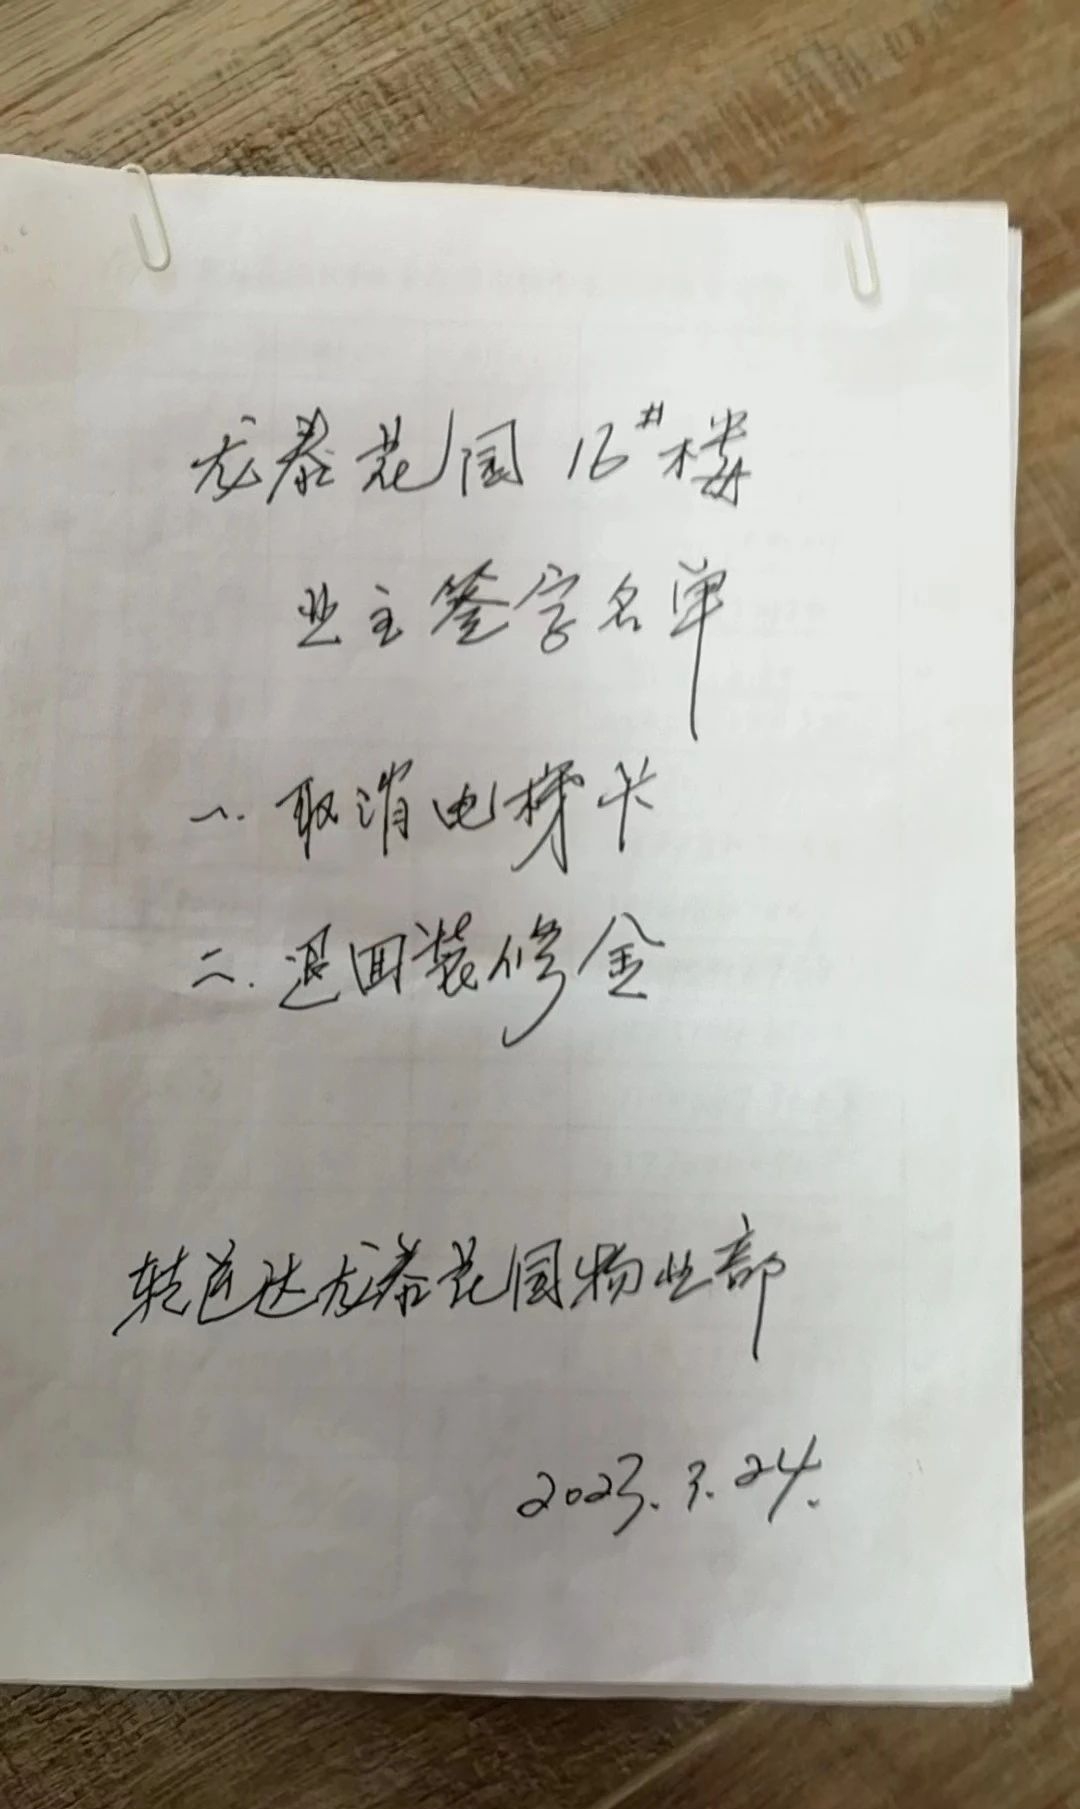 龙泰花园16#楼
业主签字名单
一.取消电梯卡
二.退回装修金
转送达龙泰花园物业部
2023.3.24.